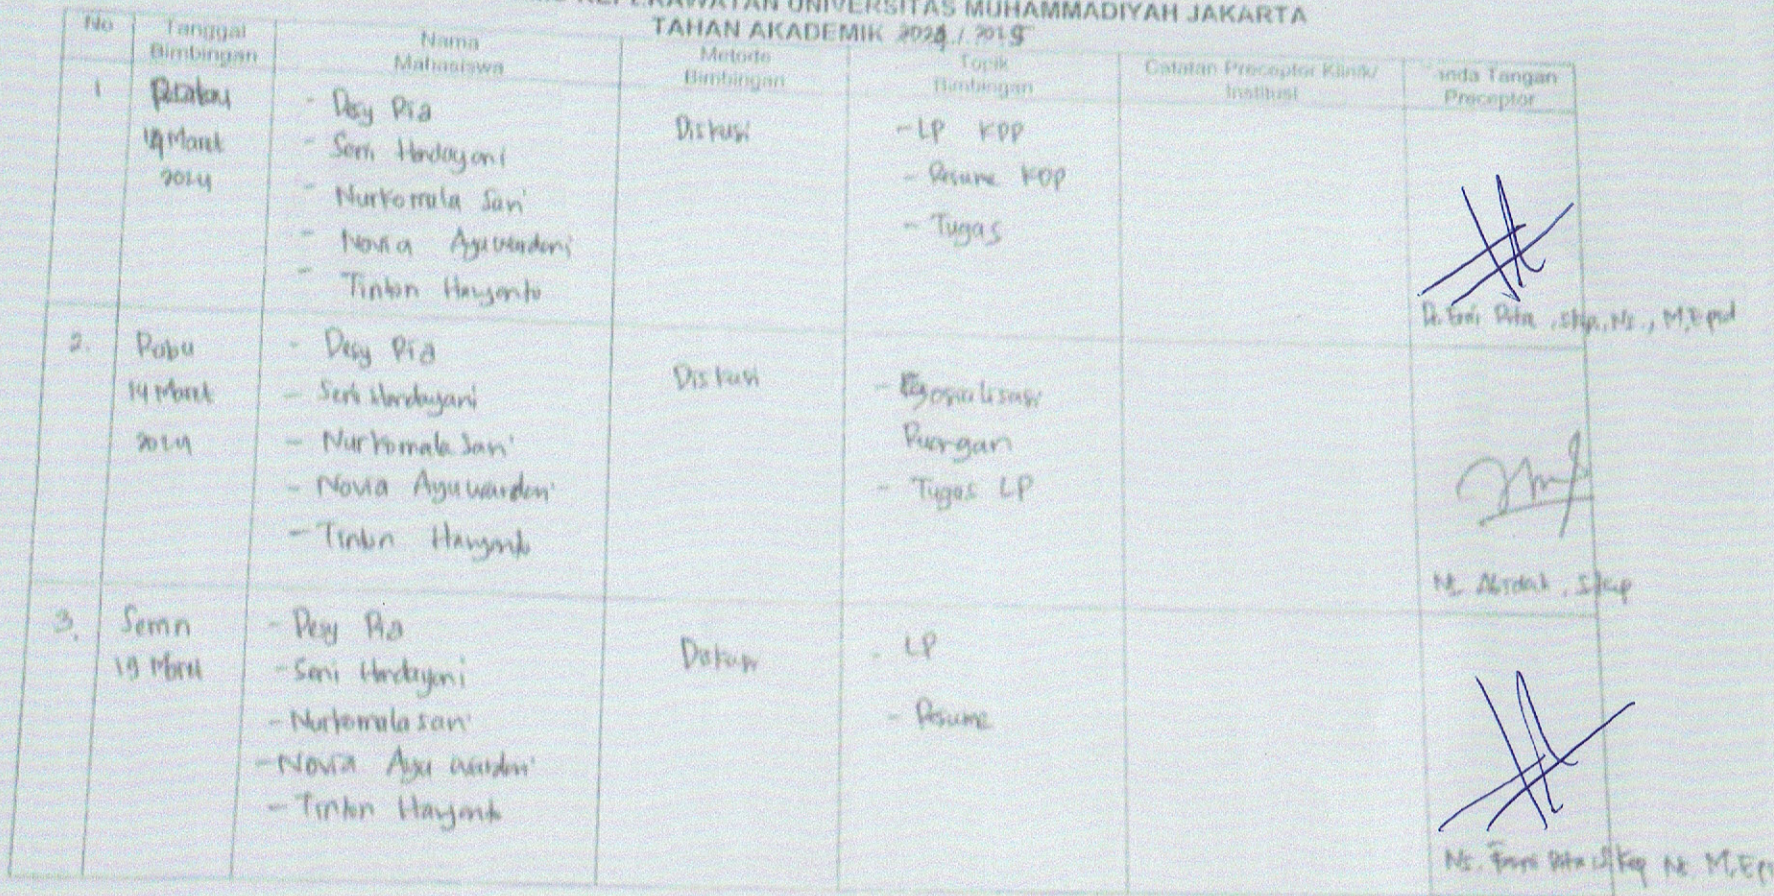 KEPERAWATAN UNIVERSITAS MUHAMMADIYAH JAKARTA
TAHAN AKADEMIK 2024 / 2025
No
Tanggal
Bimbingan
Nama
Mahasiswa
Metode
Bimbingan
Topik
Bimbingan
Catatan Preceptor Klinik/
Institusi
anda Tangan
Preceptor
1
Maret
2024
- Desy Pia
- Seni Handayani
- Nurkomala Sari
- Novia Ayuwardani
- Tinton Haryanto
Diskusi
- LP KDP
- Resume KDP
- Tugas
2.
Rabu
14 Maret
2024
- Desy Pia
- Seni Handayani
- Nurkomala Sari
- Novia Ayuwardani
- Tinton Haryanto
Diskusi
- Sosialisasi
Ruangan
- Tugas LP
3.
Senin
19 Maret
- Desy Pia
- Seni Handayani
- Nurkomala sari
- Novia Ayu wardani
- Tinton Haryanto
Diskusi
- LP
- Resume